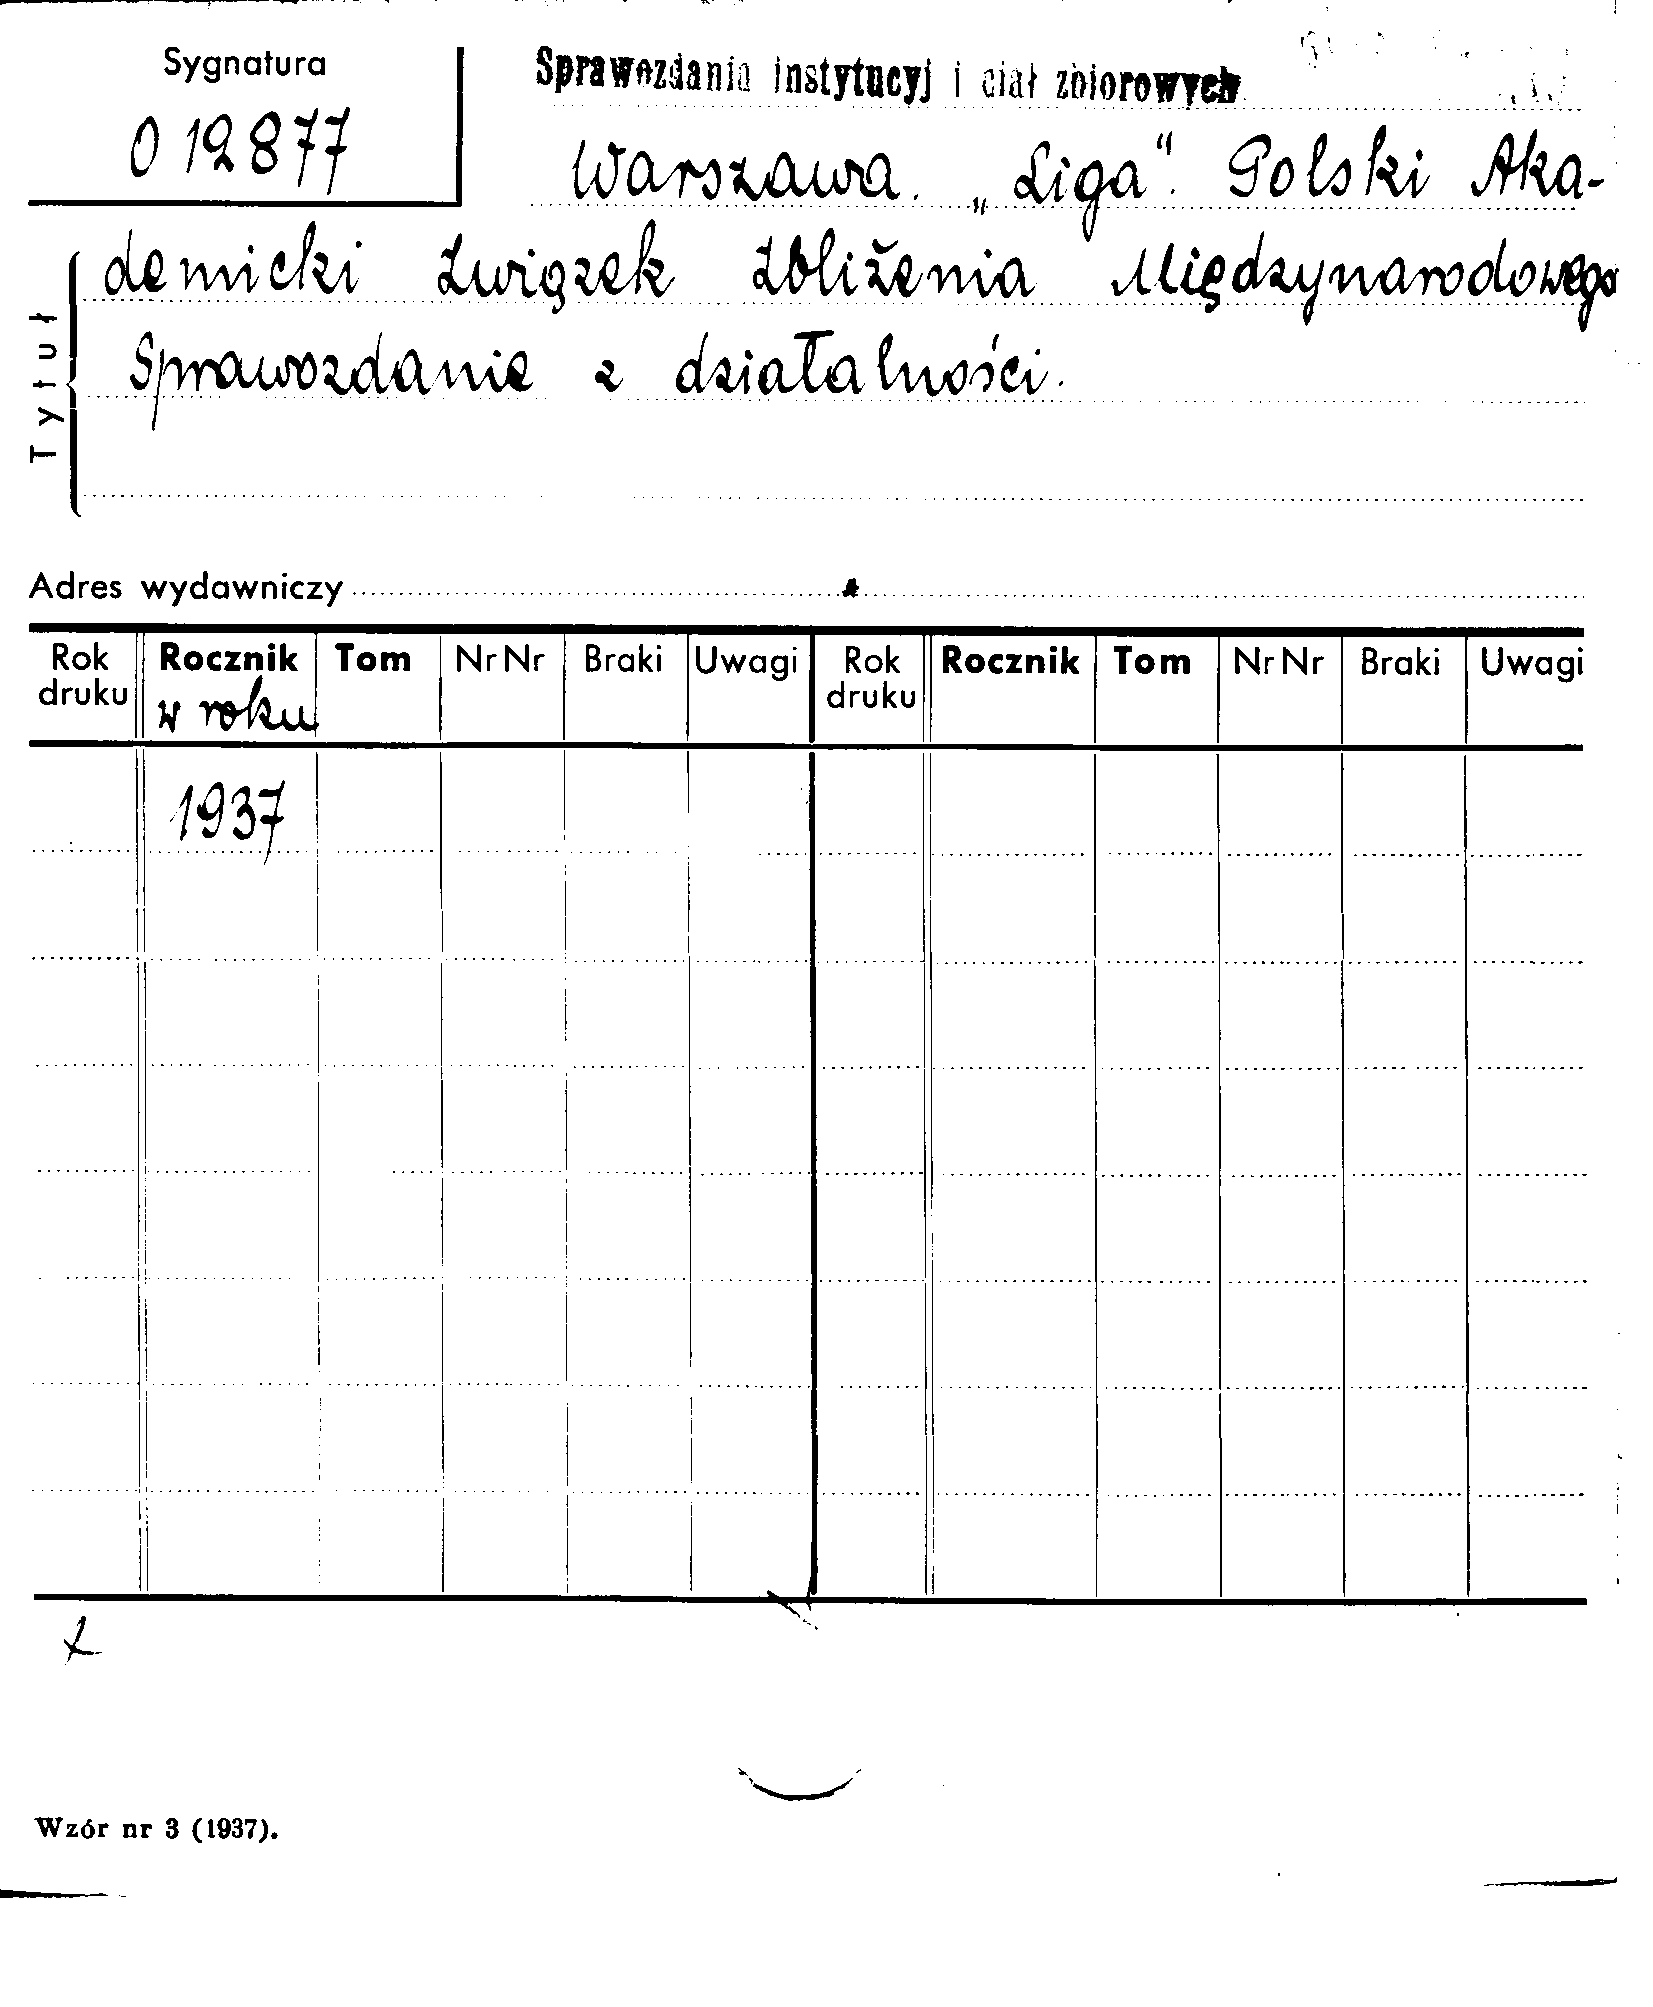 Sygnatura
Sprawozdania instytucyj i ciał zbiorowych
0 12877
Warszawa. „Liga“. Polski Aka-
demicki Związek Zbliżenia Międzynarodowego
Sprawozdanie z działalności.
Tytuł
Adres wydawniczy
Rok druku Rocznik w roku Tom Nr Nr Braki Uwagi Rok druku Rocznik Tom Nr Nr Braki Uwagi
1937
Wzór nr 3 (1937).